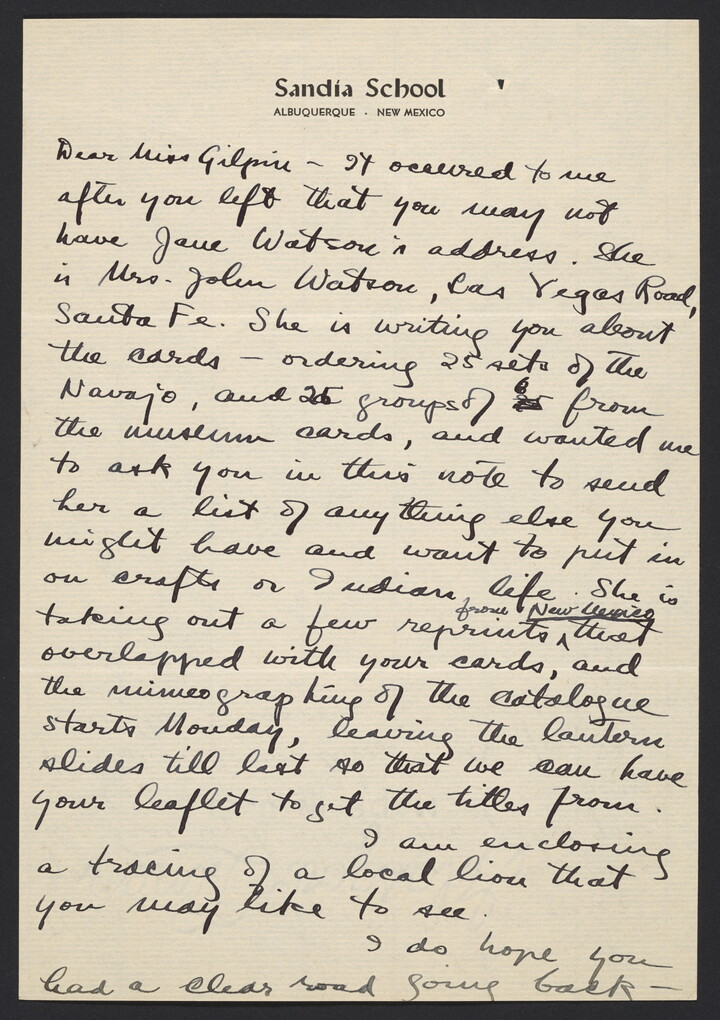 Sandia School
ALBUQUERQUE · NEW MEXICO
Dear Miss Gilpin – It occured to me
after you left that you may not
have Jane Watson's address. She
is Mrs. John Watson, Las Vegas Road,
Santa Fe. She is writing you about
the cards – ordering 25 sets of the
Navajo, and 25 groups of 6 from
the museum cards, and wanted me
to ask you in this note to send
her a list of anything else you
might have and want to put in
on crafts or Indian life. She is
from New Mexico
taking out a few reprints, that
overlapped with your cards, and
the mimeographing of the catalogue
starts Monday, leaving the lantern
slides till last so that we can have
your leaflet to get the titles from.
I am enclosing
a tracing of a local lion that
you may like to see.
I do hope you
had a clear road going back –